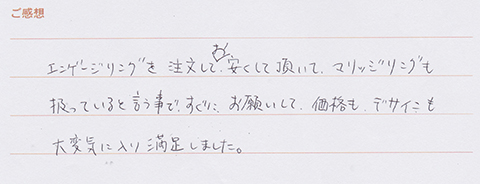 ご感想
エンゲージリングを注文して、お安くして頂いて、マリッジリングも
扱っていると言う事で、すぐに、お願いして、価格も、デサインも
大変気に入り満足しました。